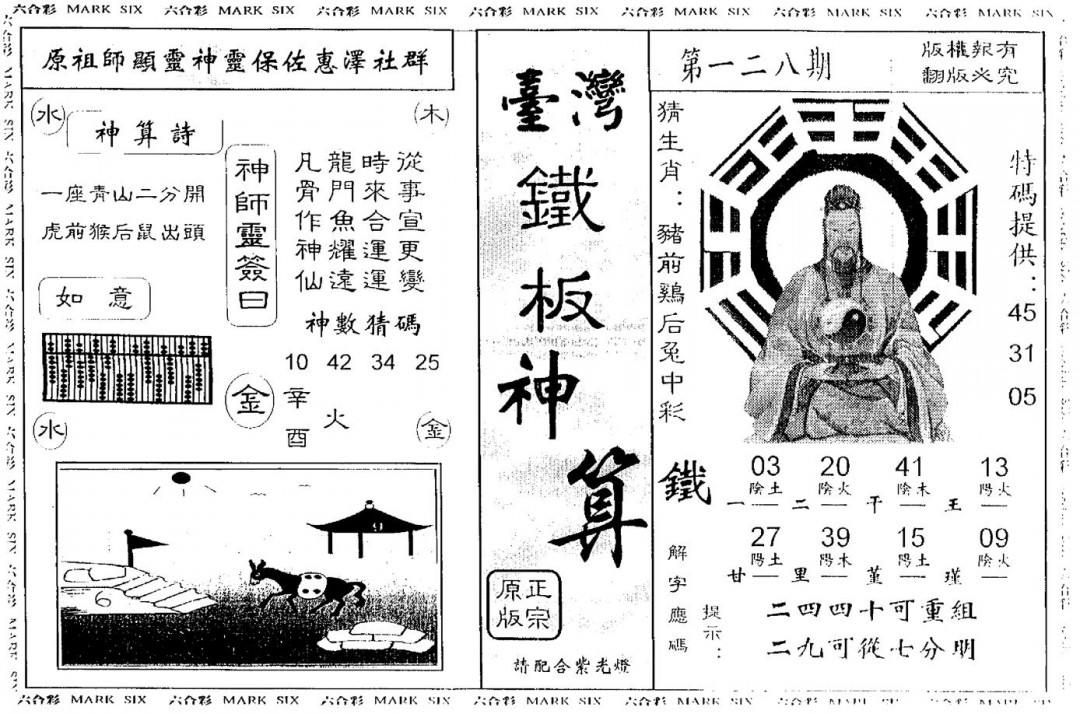 六合彩 MARK SIX 六合彩 MARK SIX 六合彩 MARK SIX 六合彩 MARK SIX 六合彩 MARK SIX 六合彩 MARK SIX 六合彩 MARK SIX
原祖師顯靈神靈保佐惠澤社群
水
木
神算詩
一座青山二分開
虎前猴后鼠出頭
如意
神師靈簽曰
從事宣更變
時來合運運
龍門魚耀遠
凡骨作神仙
神數猜碼
10 42 34 25
金
辛酉
火
水
金
臺灣
鐵板神算
正宗
原版
請配合紫光燈
第一二八期
版權報有
翻版必究
猜生肖：豬前鷄后兔中彩
特碼提供：
45
31
05
鐵
03 20 41 13
陰土 陰火 陰木 陽火
一 二 干 王
27 39 15 09
陽土 陽木 陽土 陰火
甘 里 堇 瑾
解字應碼
提示：
二四四十可重組
二九可從七分明
六合彩 MARK SIX 六合彩 MARK SIX 六合彩 MARK SIX 六合彩 MARK SIX 六合彩 MARK SIX